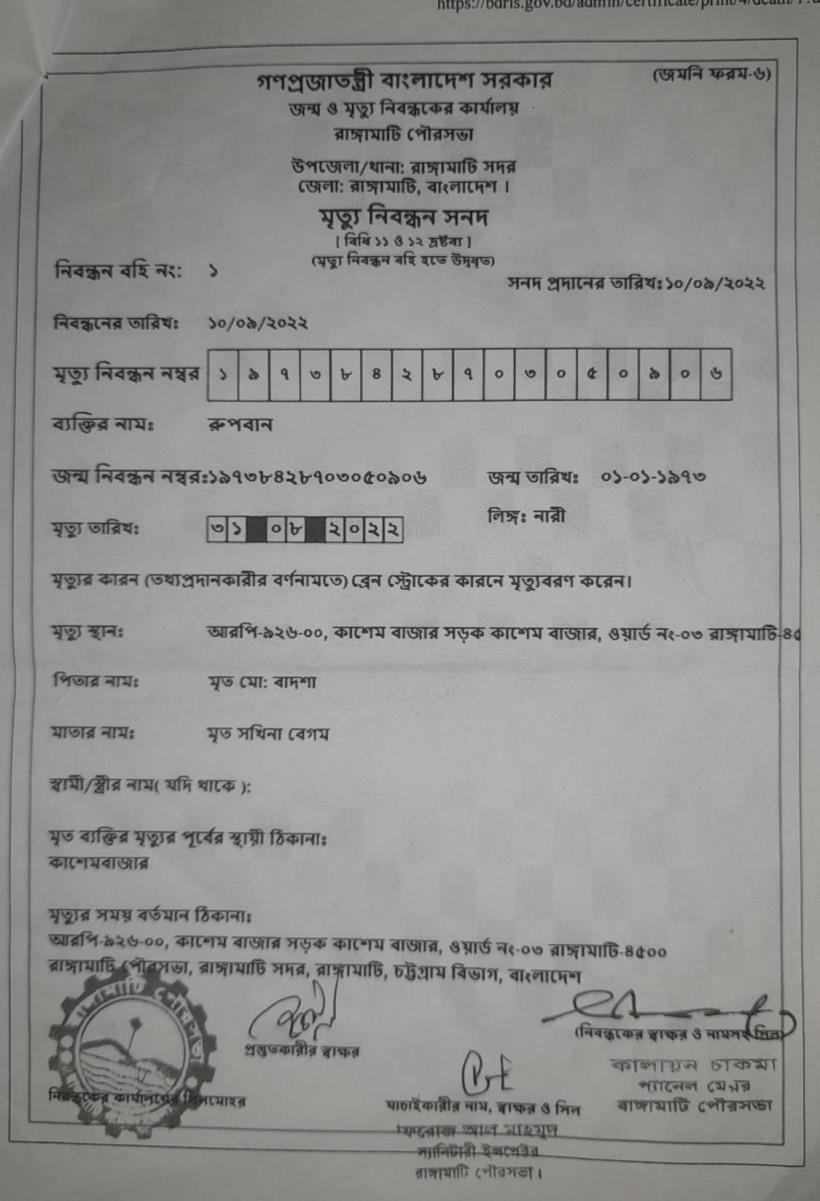 https://bdris.gov.bd/admin/certificate/print/4/death/
(জমনি ফরম-৬)
গণপ্রজাতন্ত্রী বাংলাদেশ সরকার
জন্ম ও মৃত্যু নিবন্ধকের কার্যালয়
রাঙ্গামাটি পৌরসভা
উপজেলা/থানা: রাঙ্গামাটি সদর
জেলা: রাঙ্গামাটি, বাংলাদেশ ।
মৃত্যু নিবন্ধন সনদ
[ বিধি ১১ ও ১২ দ্রষ্টব্য ]
(মৃত্যু নিবন্ধন বহি হতে উদ্বৃত)
নিবন্ধন বহি নং: ১
সনদ প্রদানের তারিখ: ১০/০৯/২০২২
নিবন্ধনের তারিখ: ১০/০৯/২০২২
মৃত্যু নিবন্ধন নম্বর ১ ৯ ৭ ৩ ৮ ৪ ২ ৮ ৭ ০ ৩ ০ ৫ ০ ৯ ০ ৬
ব্যক্তির নাম: রুপবান
জন্ম নিবন্ধন নম্বর:১৯৭৩৮৪২৮৭০৩০৫০৯০৬ জন্ম তারিখ: ০১-০১-১৯৭৩
মৃত্যু তারিখ: ৩১ ০৮ ২০২২ লিঙ্গ: নারী
মৃত্যুর কারন (তথ্যপ্রদানকারীর বর্ণনামতে) ব্রেন স্ট্রোকের কারনে মৃত্যুবরণ করেন।
মৃত্যু স্থান: আরপি-৯২৬-০০, কাশেম বাজার সড়ক কাশেম বাজার, ওয়ার্ড নং-০৩ রাঙ্গামাটি-৪৫
পিতার নাম: মৃত মো: বাদশা
মাতার নাম: মৃত সখিনা বেগম
স্বামী/স্ত্রীর নাম( যদি থাকে ):
মৃত ব্যক্তির মৃত্যুর পূর্বের স্থায়ী ঠিকানা:
কাশেমবাজার
মৃত্যুর সময় বর্তমান ঠিকানা:
আরপি-৯২৬-০০, কাশেম বাজার সড়ক কাশেম বাজার, ওয়ার্ড নং-০৩ রাঙ্গামাটি-৪৫০০
রাঙ্গামাটি পৌরসভা, রাঙ্গামাটি সদর, রাঙ্গামাটি, চট্টগ্রাম বিভাগ, বাংলাদেশ
প্রস্তুতকারীর স্বাক্ষর
(নিবন্ধকের স্বাক্ষর ও নামসহ সিল)
কালায়ন চাকমা
প্যানেল মেয়র
রাঙ্গামাটি পৌরসভা
নিবন্ধকের কার্যালয়ের সিলমোহর
যাচাইকারীর নাম, স্বাক্ষর ও সিল
ফিরোজ আল মাহমুদ
স্যানিটারী ইন্সপেক্টর
রাঙ্গামাটি পৌরসভা।